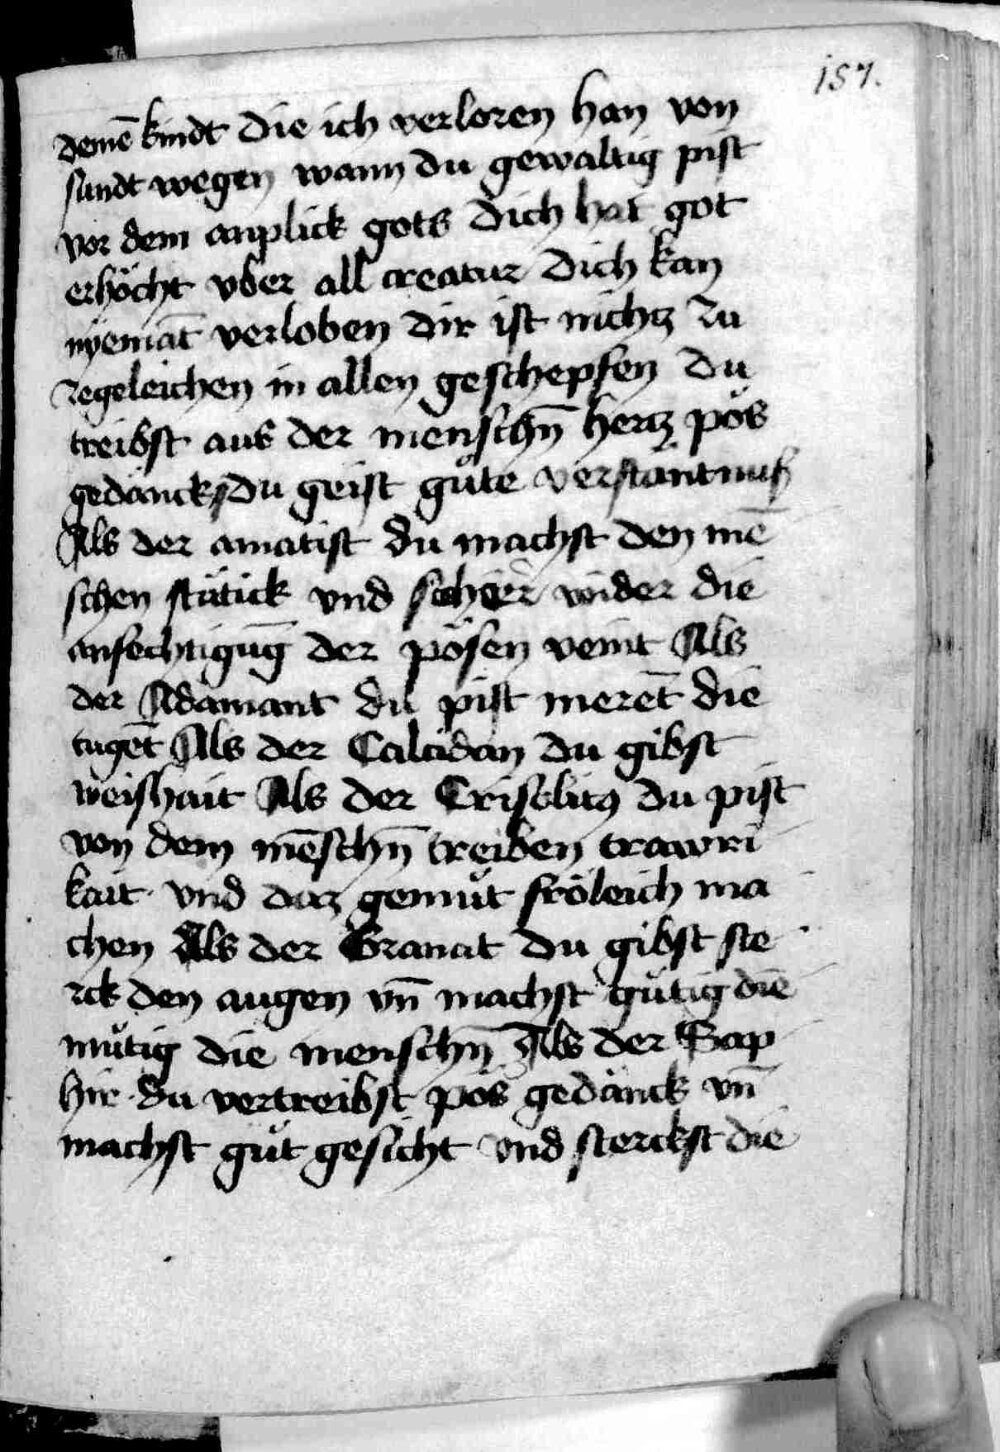 157.
demē kindt die ich verloren han von
sundt wegen wann du gewaltig pist
vor dem anplick gots dich hat got
erhöcht vber all creatur dich kan
nyemāt verloben dir ist nichtz zu
zegeleichen in allen geschepfen Du
treibst aus der menschn̄ hertz pös
gedänck du geist gůte verstantnuß
Als der amatist du machst den mē
schen stätick vnd schirr wider die
anfechtigūg der pösen veint Als
der Adamant du pist merēt die
tugēt Als der Calcidan du gibst
weishait Als der Crisolitꝰ du pist
von dem mēschn̄ treiben trawri
kait vnd daz gemüt fröleich ma
chen Als der Granat du gibst ste
rck den augen vn̄ machst gütig die
mütig die menschn̄ Als der Sap
hir du vertreibst pos gedänck vn̄
machst güt gesicht vnd sterckst die